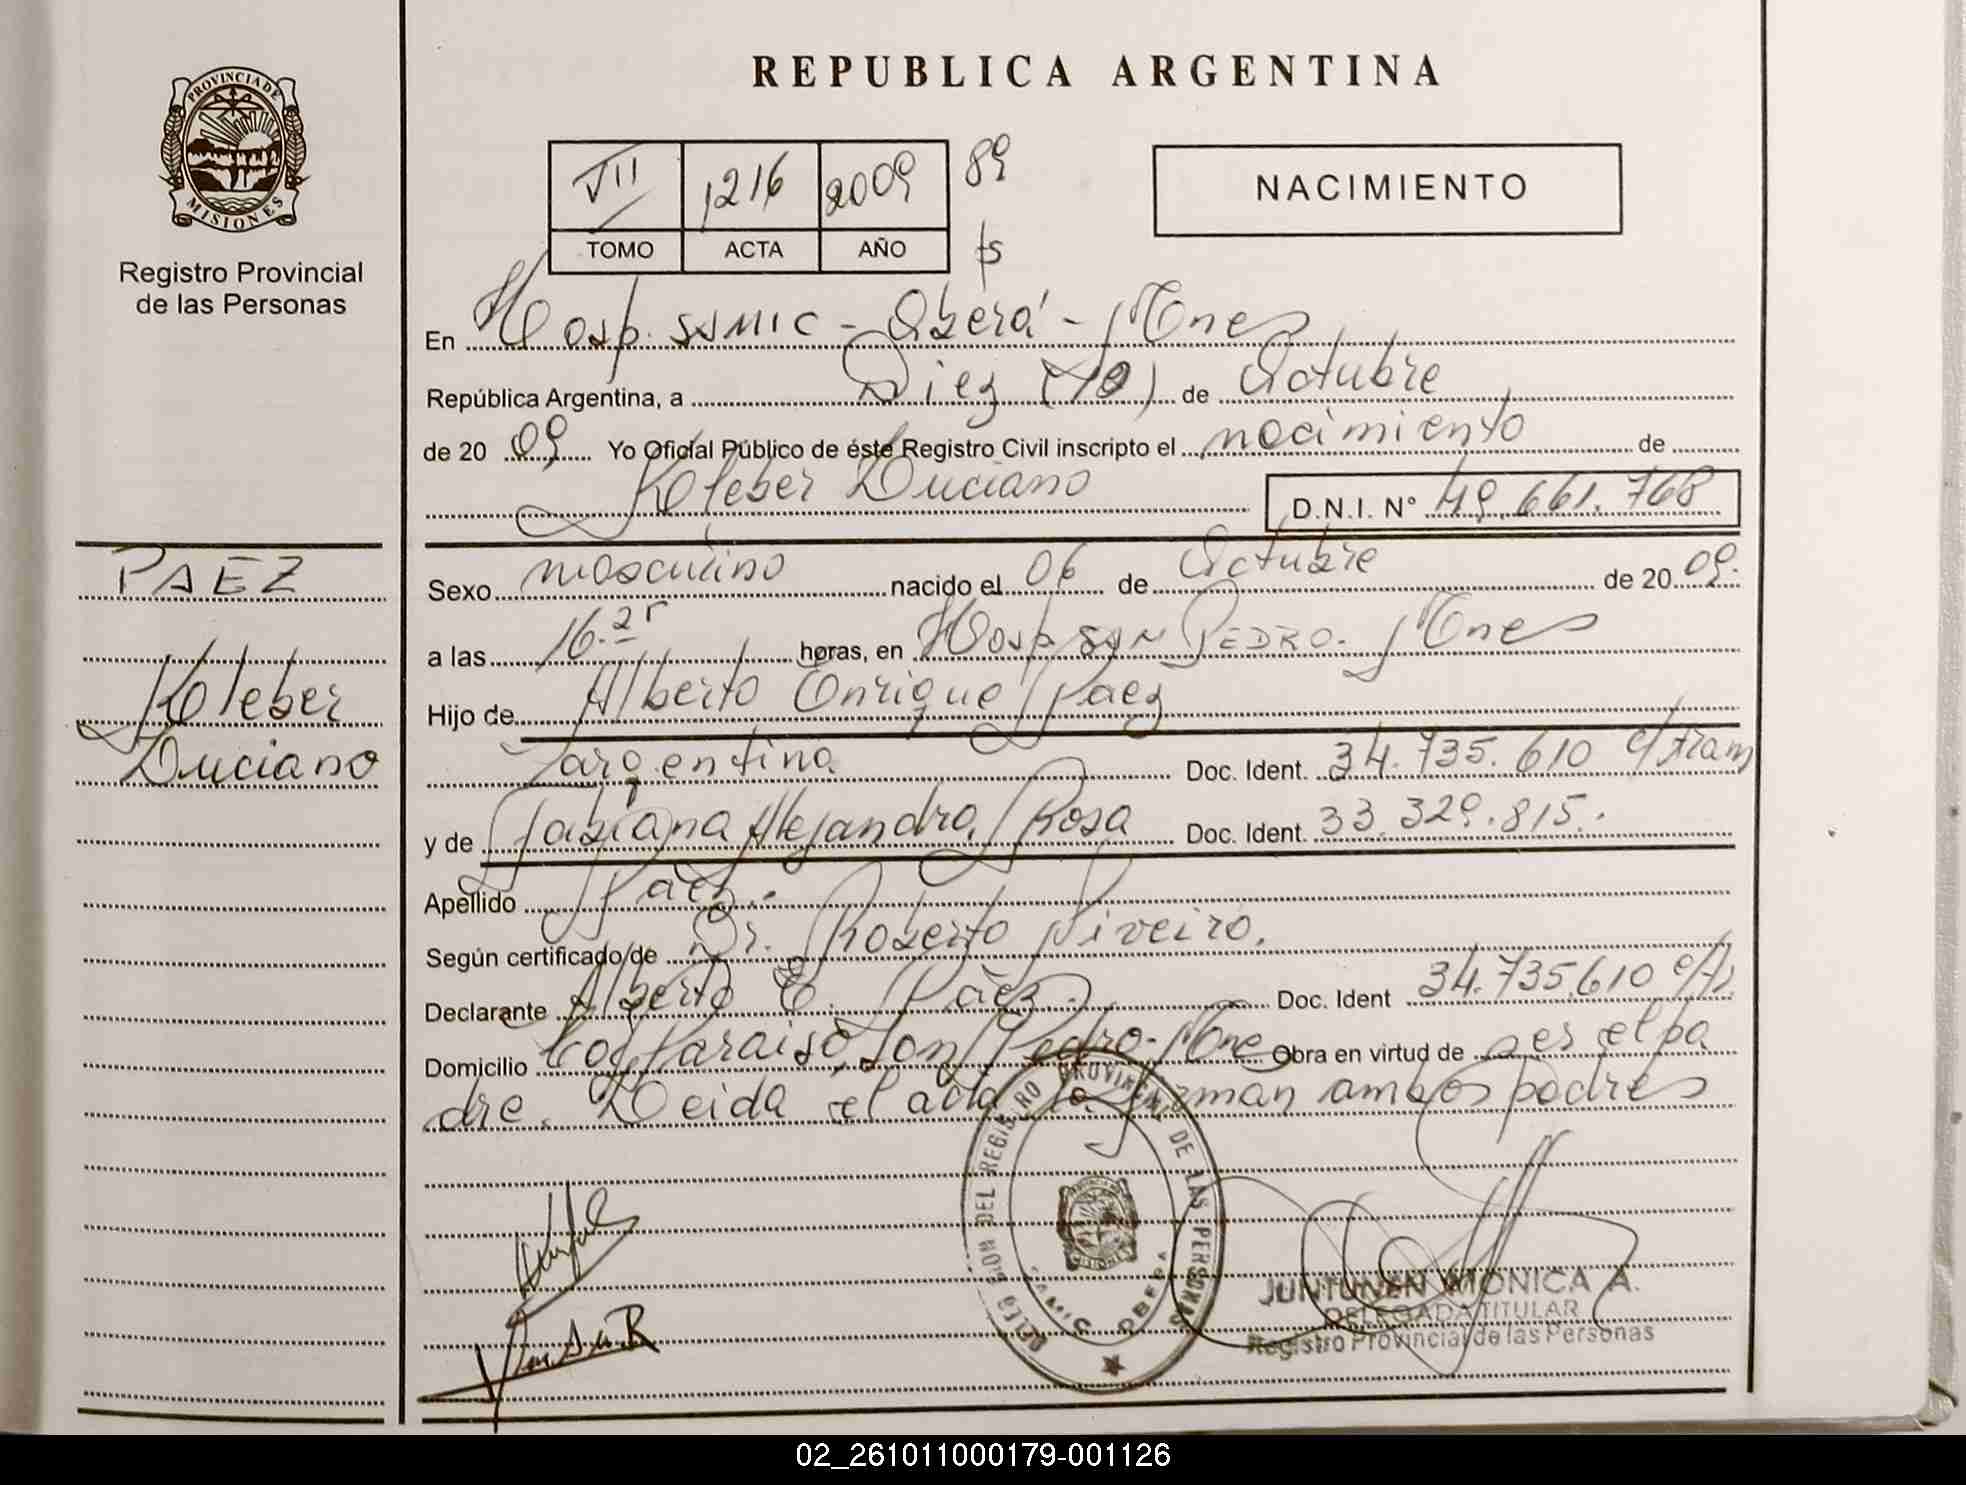 REPUBLICA ARGENTINA
PROVINCIA DE
MISIONES
Registro Provincial
de las Personas
VII 1216 2009 89
TOMO ACTA AÑO fs
NACIMIENTO
En Hosp. SAMIC - Oberá - Mnes
República Argentina, a Diez (10) de Octubre
de 20 09 Yo Oficial Público de éste Registro Civil inscripto el nacimiento de
Kleber Luciano D.N.I. N° 49.661.768
PAEZ
Kleber
Luciano
Sexo masculino nacido el 06 de Octubre de 20 09.
a las 16.25 horas, en Hosp SAN PEDRO. Mnes
Hijo de Alberto Enrique Paez
argentina Doc. Ident. 34.735.610 c/tram
y de Fabiana Alejandra Rosa Doc. Ident. 33.329.815.
Apellido Páez.
Según certificado de Dr. Roberto Piveiro.
Declarante Alberto E. Páez. Doc. Ident 34.735.610 c/t.
Domicilio Co Paraiso, San Pedro-Mnes Obra en virtud de ser el pa
dre. Leida el acta la firman ambos padres
DELEGACION DEL REGISTRO PROVINCIAL DE LAS PERSONAS
SAMIC OBERA
JUNTUNEN MONICA A.
DELEGADA TITULAR
Registro Provincial de las Personas
02_261011000179-001126